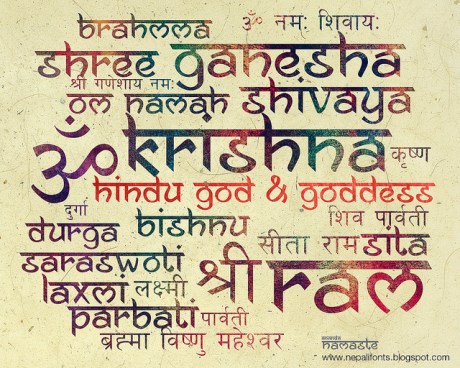 brahmma ॐ नमः शिवायः
shree ganesha
श्री गणेशाय नमः
om namah shivaya
ॐ krishna कृष्ण
hindu god & goddess
दुर्गा bishnu शिव पार्वती
durga सीता राम sita
saraswoti श्री ram
laxmi लक्ष्मी
parbati पार्वती
ब्रह्मा विष्णु महेश्वर
ananda
namaste
www.nepalifonts.blogspot.com